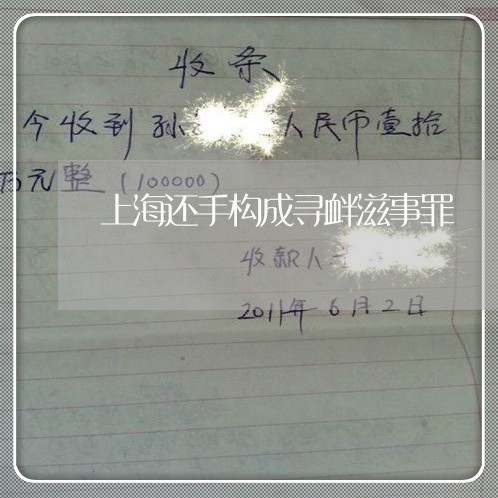 收条
今收到孙 人民币壹拾
万元整(100000)
上海还手构成寻衅滋事罪
收款人
2011年6月2日